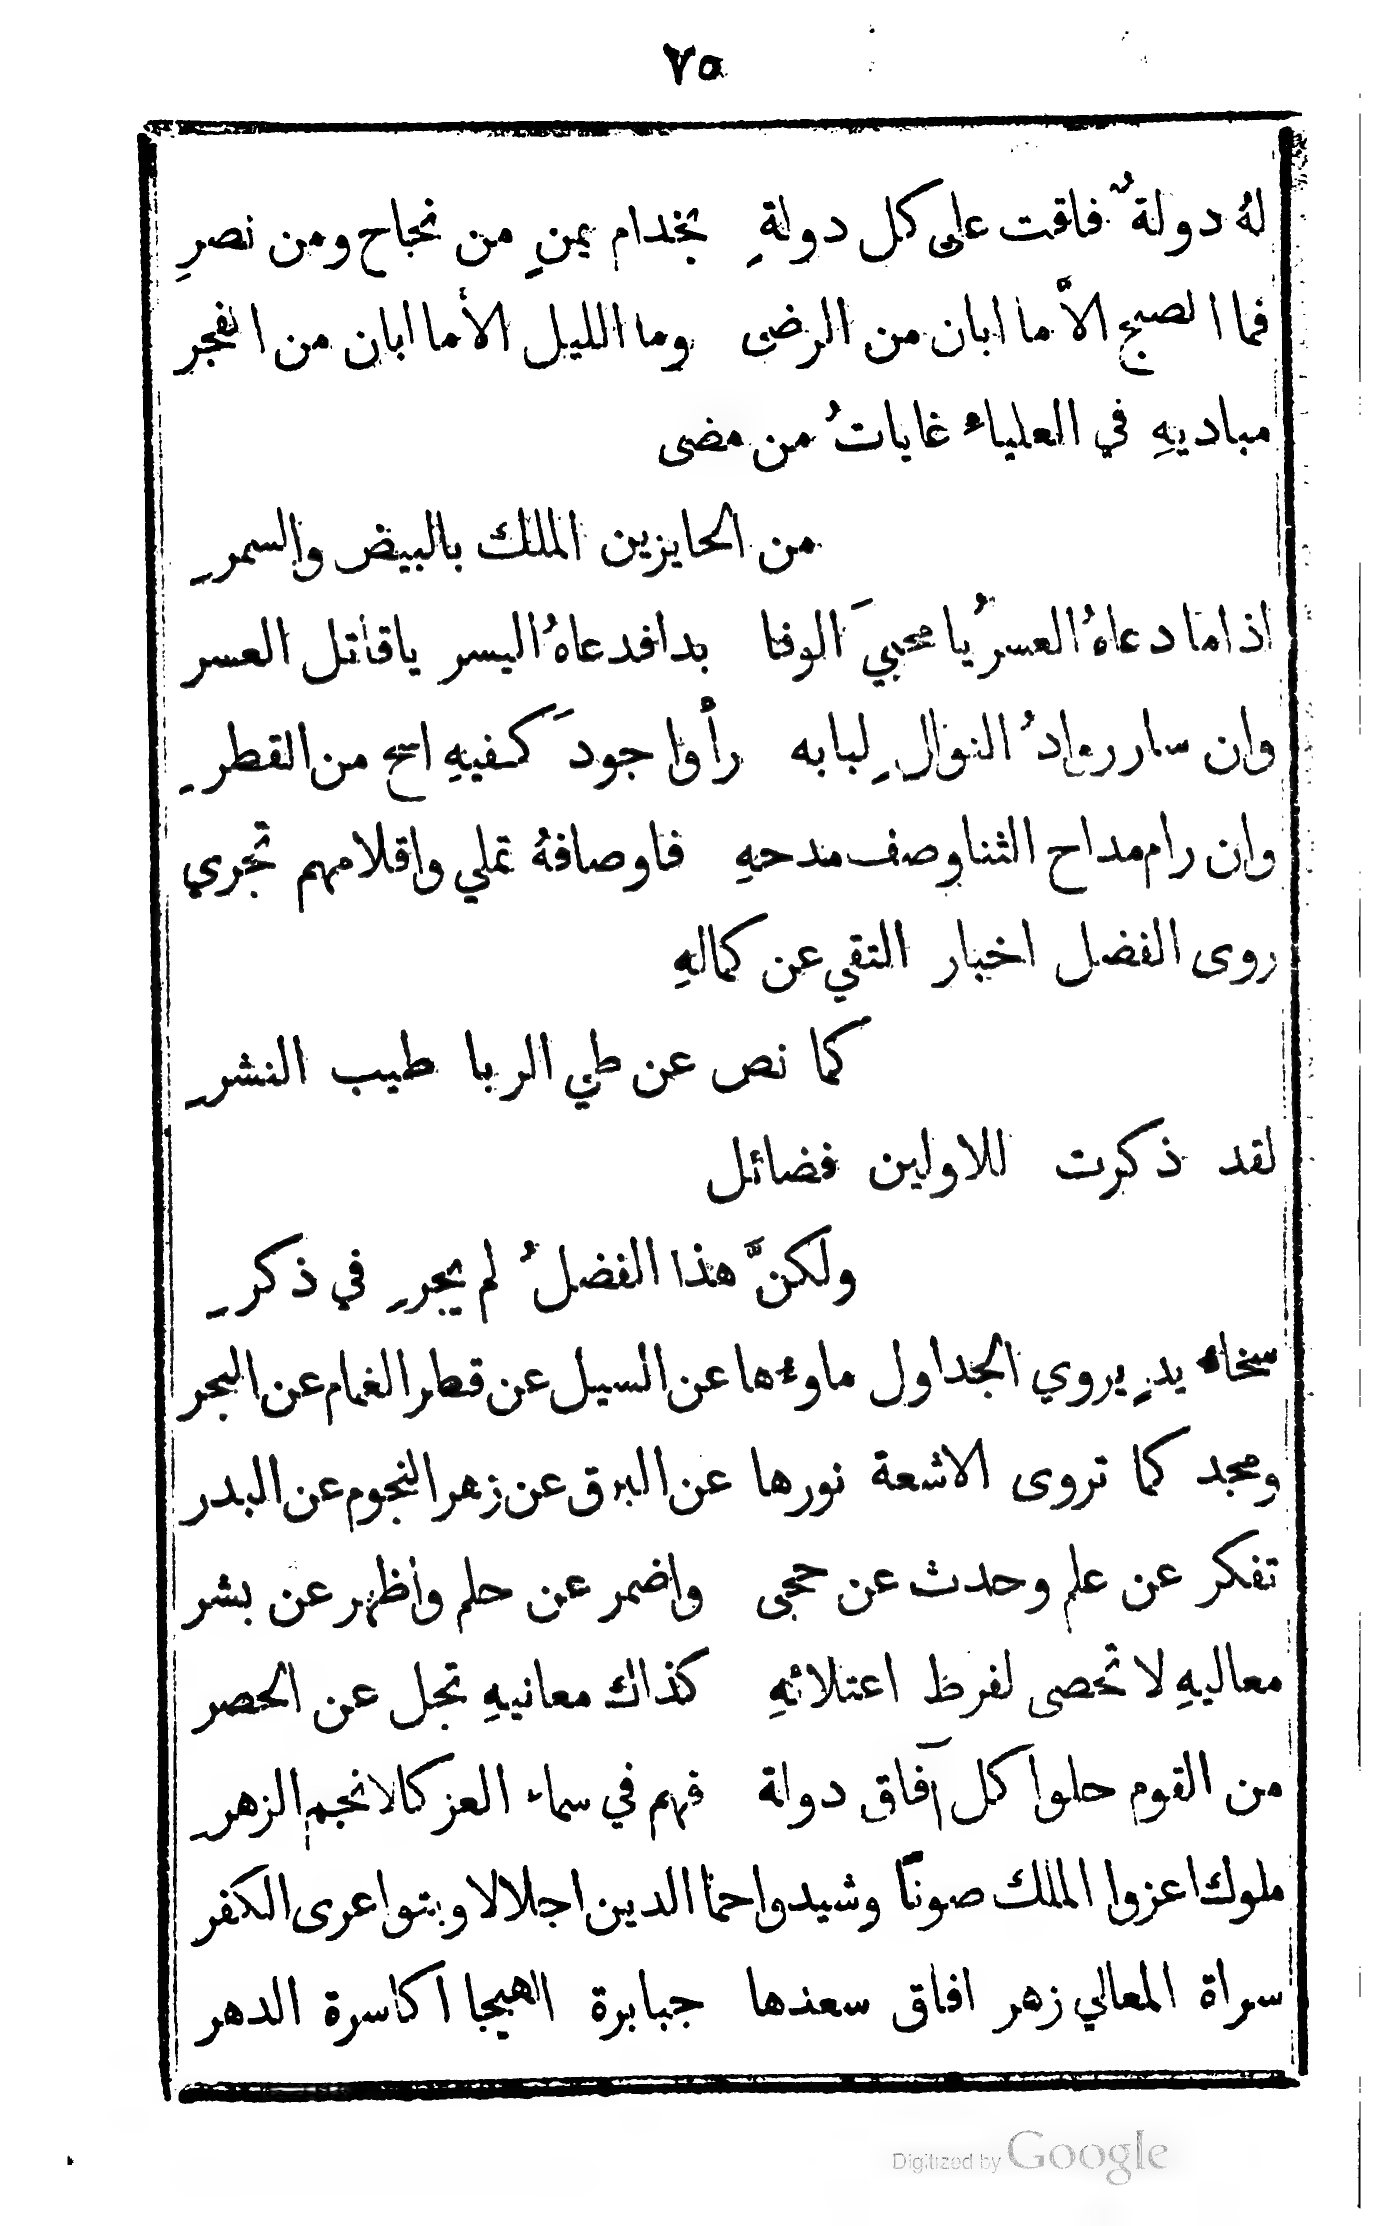 ٧٥
لهُ دولةٌ فاقت على كل دولةٍ بخدام يمنٍ من نجاح ومن نصرِ
فما الصبح الاَّ ما ابان من الرضى وما الليل الأما ابان من الفجر
مباديهِ في العلياء غاياتُ من مضى
من الحايزين الملك بالبيض والسمرِ
اذا ما دعاهُ العسرُ يا محييَ الوفا بدا فدعاهُ اليسر ياقاتل العسر
وان سار روادُ النوالِ لبابه رأوا جودَ كفيهِ اسح من القطرِ
وان رام مداح الثنا وصف مدحهِ فاوصافهُ تملي واقلامهم تجري
روى الفضل اخبار التقي عن كمالهِ
كما نص عن طي الربا طيب النشرِ
لقد ذكرت للاولين فضائل
ولكنَّ هذا الفضلُ لم يجرِ في ذكرِ
سخاء يدٍ يروي الجداول ماوءها عن السيل عن قطر الغمام عن البحر
ومجد كما تروى الاشعة نورها عن البرق عن زهر النجوم عن البدر
تفكر عن علم وحدث عن حجى واضمر عن حلم وأظهر عن بشر
معاليهِ لا تحصى لفرط اعتلائهِ كذاك معانيهِ تجل عن الحصر
من القوم حلوا كل آفاق دولة فهم في سماء العز كالانجم الزهرِ
ملوك اعزوا الملك صونًا وشيدوا حما الدين اجلالا وبتوا عرى الكفر
سراة المعالي زهر افاق سعدها جبابرة الهيجا اكاسرة الدهر
Digitized by Google